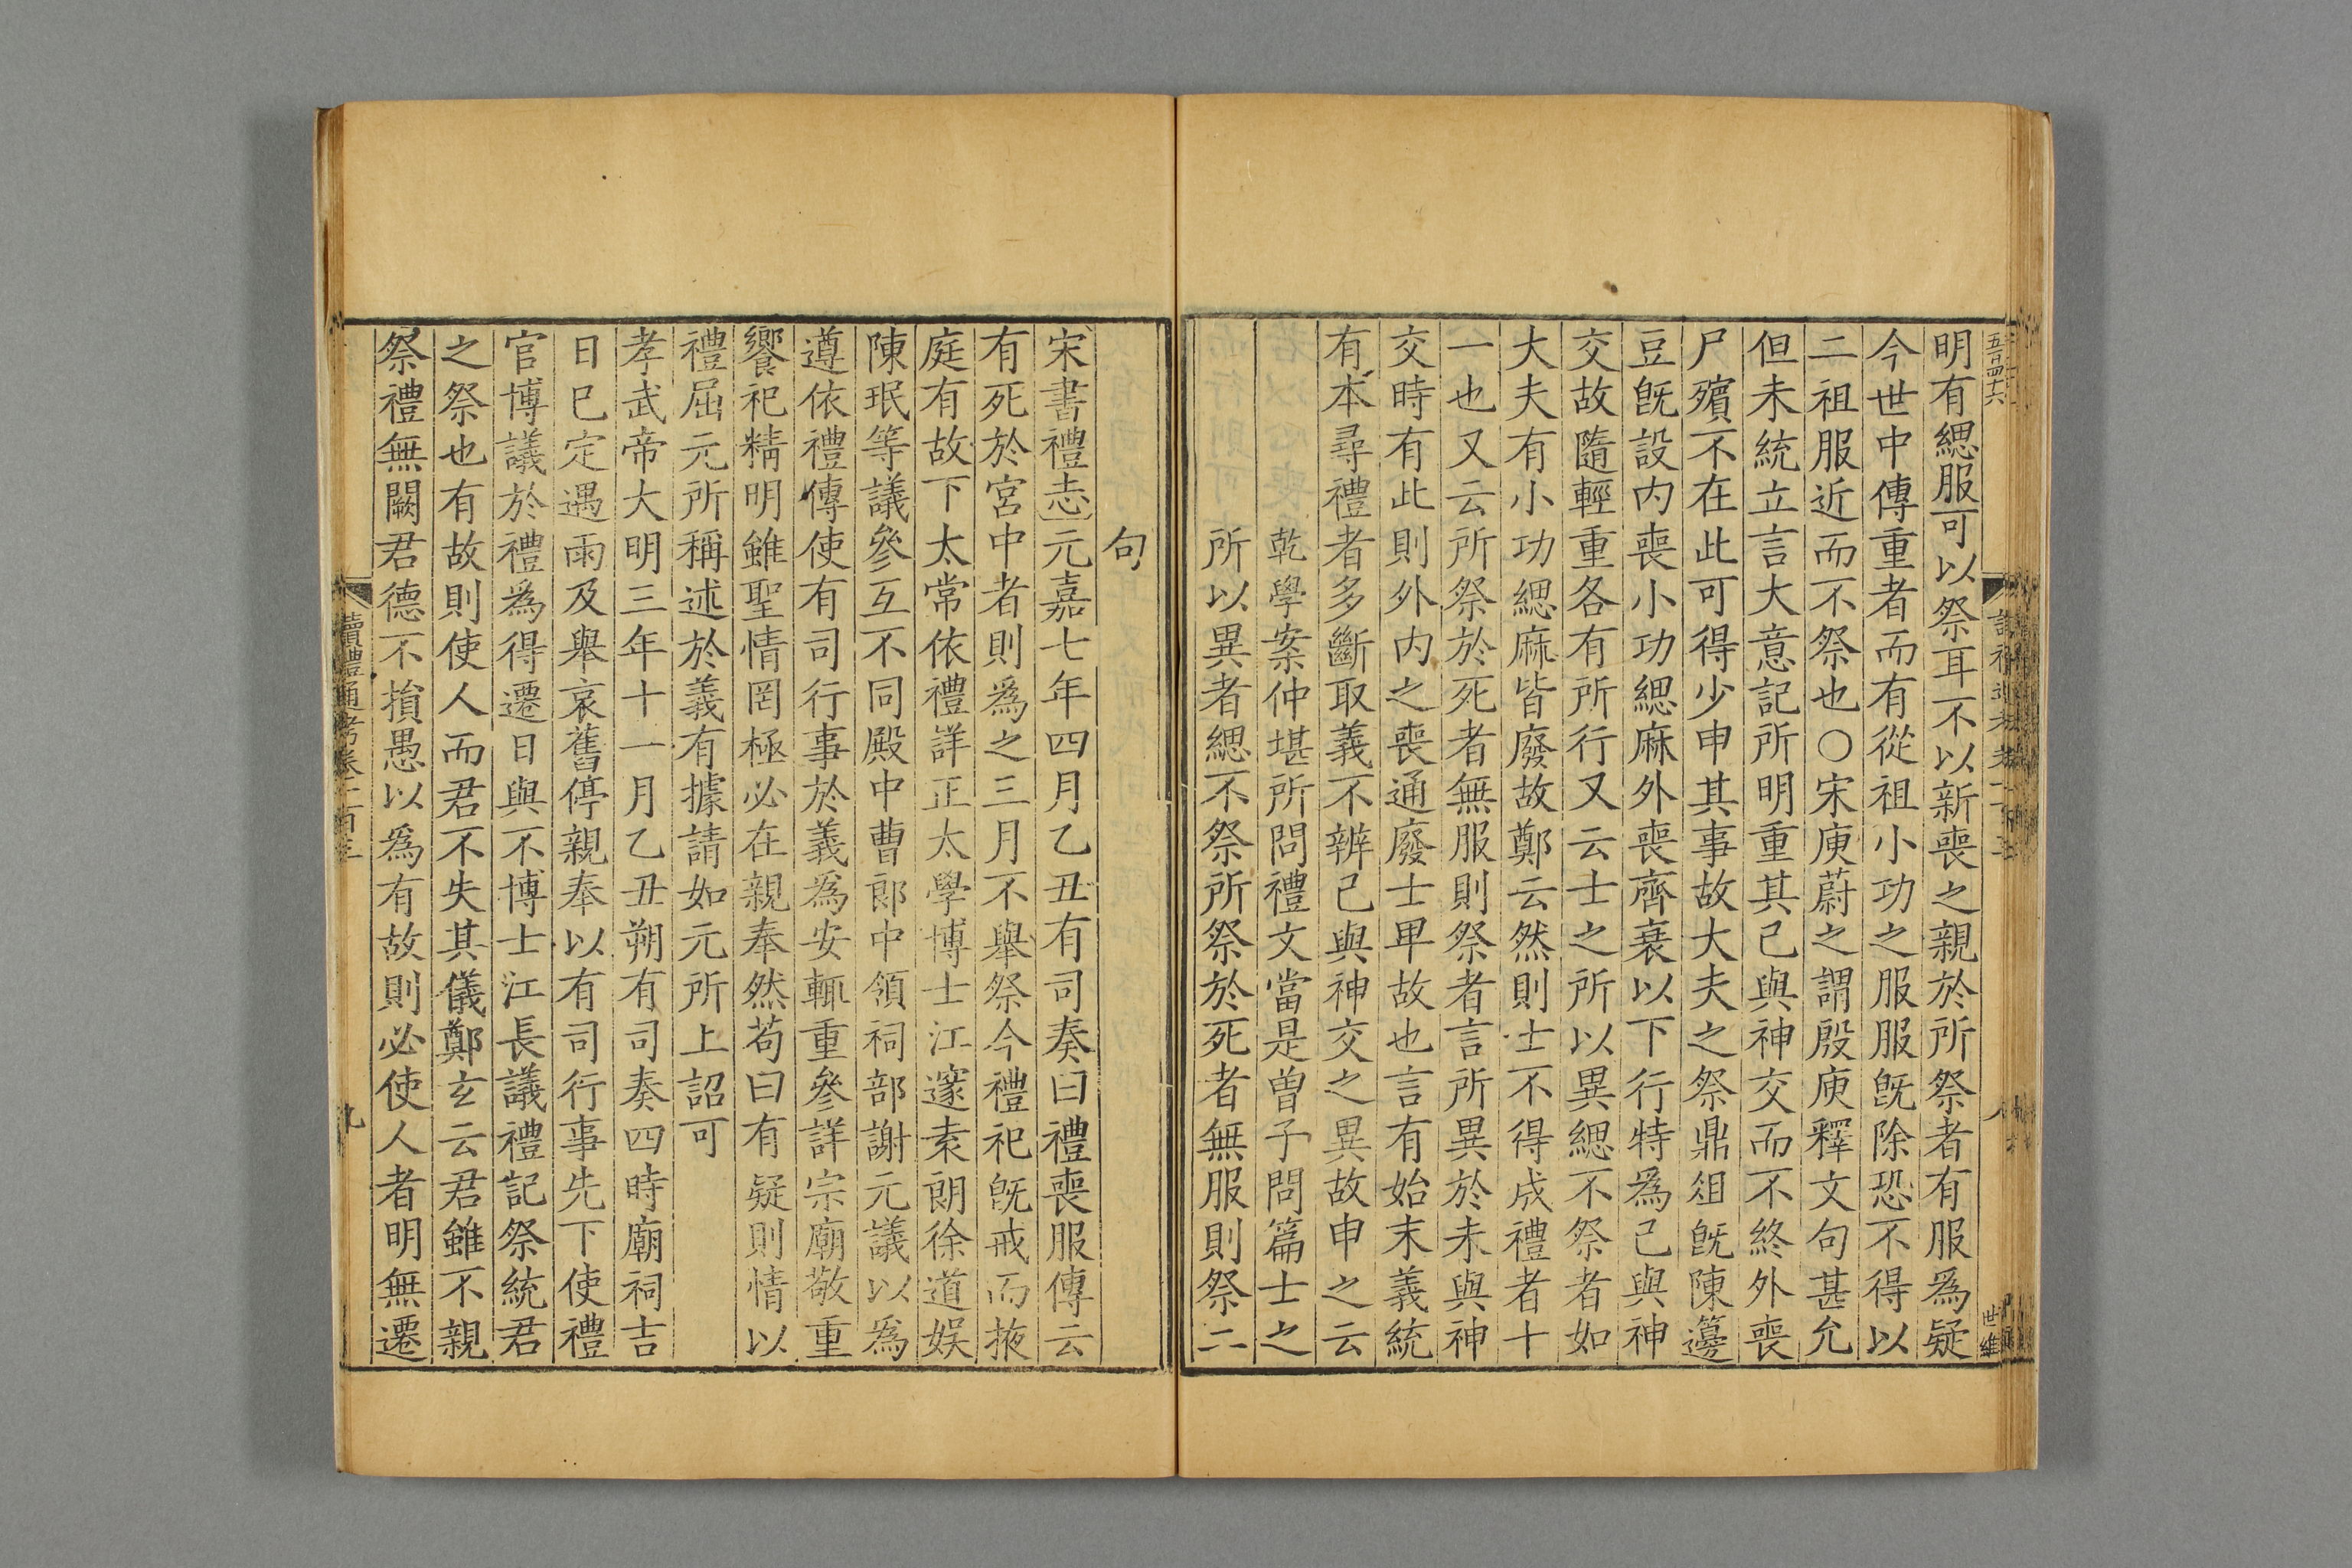 五百四十六
明有緦服可以祭耳不以新喪之親於所祭者有服爲疑
今世中傳重者而有從祖小功之服服旣除恐不得以
二祖服近而不祭也○宋庾蔚之謂殷庾釋文句甚允
但未統立言大意記所明重其己與神交而不終外喪
尸殯不在此可得少申其事故大夫之祭鼎俎旣陳籩
豆旣設内喪小功緦麻外喪齊衰以下行特爲己與神
交故隨輕重各有所行又云士之所以異緦不祭者如
大夫有小功緦麻皆廢故鄭云然則士不得成禮者十
一也又云所祭於死者無服則祭者言所異於未與神
交時有此則外内之喪通廢士卑故也言有始末義統
有本尋禮者多斷取義不辨己與神交之異故申之云
乾學案仲堪所問禮文當是曽子問篇士之
所以異者緦不祭所祭於死者無服則祭二
八
世維
句
宋書禮志元嘉七年四月乙丑有司奏曰禮喪服傳云
有死於宮中者則爲之三月不舉祭今禮祀旣戒而掖
庭有故下太常依禮詳正太學博士江邃袁朗徐道娱
陳珉等議參互不同殿中曹郎中領祠部謝元議以爲
遵依禮傳使有司行事於義爲安輒重參詳宗廟敬重
饗祀精明雖聖情罔極必在親奉然苟曰有疑則情以
禮屈元所稱述於義有據請如元所上詔可
孝武帝大明三年十一月乙丑朔有司奏四時廟祠吉
日巳定遇雨及舉哀舊停親奉以有司行事先下使禮
官博議於禮爲得遷日與不博士江長議禮記祭統君
之祭也有故則使人而君不失其儀鄭玄云君雖不親
祭禮無闕君德不損愚以爲有故則必使人者明無遷
讀禮通考卷一百三
九